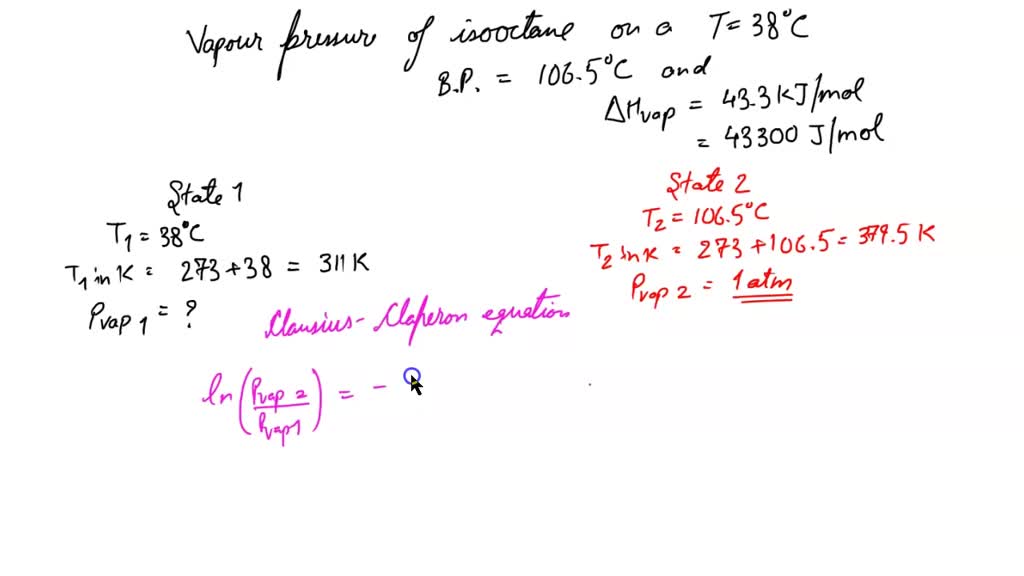 Vapour pressure of isooctane on a T = 38°C
B.P. = 106.5°C and
ΔHvap = 43.3 KJ/mol
= 43300 J/mol
State 1
T1 = 38°C
T1 in K = 273 + 38 = 311 K
Pvap 1 = ?
State 2
T2 = 106.5°C
T2 in K = 273 + 106.5 = 379.5 K
Pvap 2 = 1 atm
Clausius - Claperon equation
ln (Pvap 2 / Pvap 1) = -